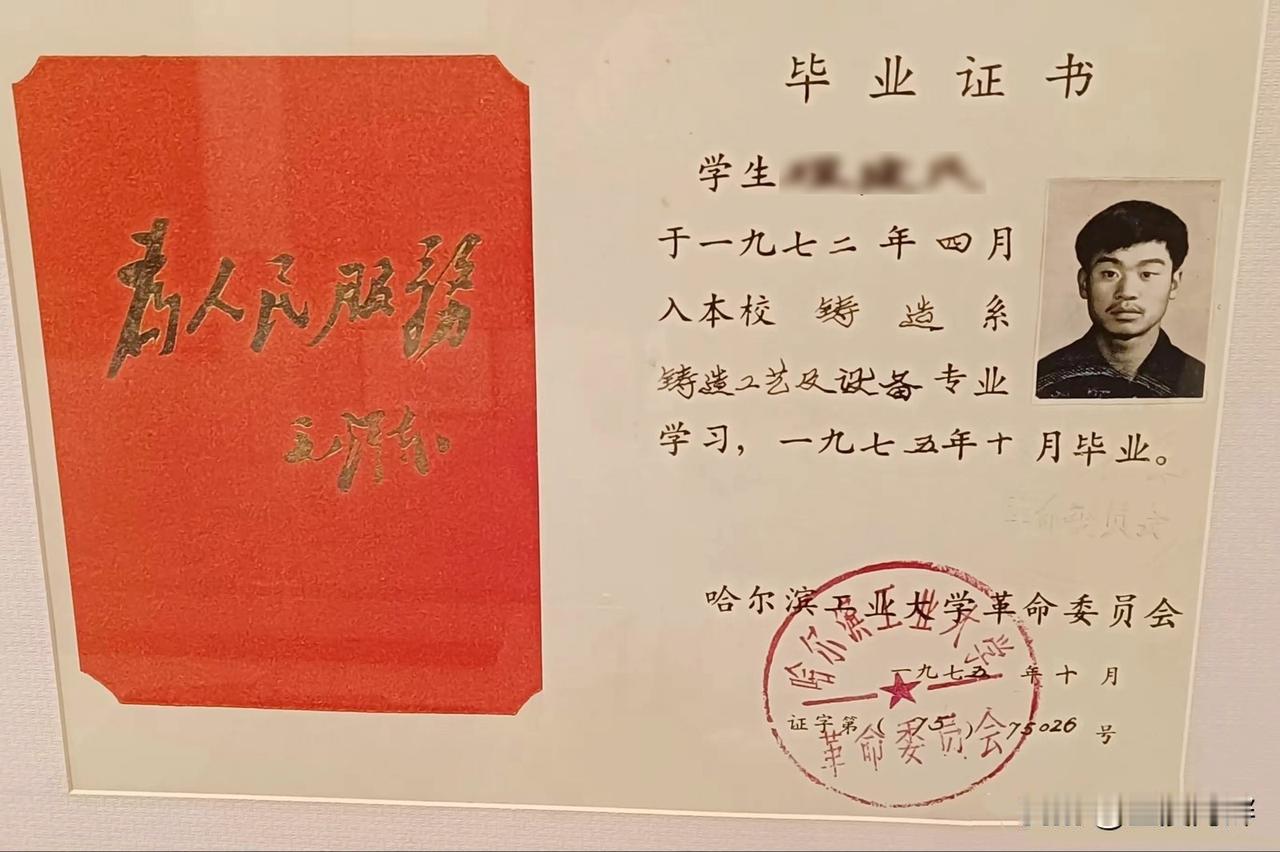 為人民服務
毛澤东
毕业证书
学生
于一九七二年四月
入本校 铸造系
铸造工艺及设备专业
学习，一九七五年十月毕业。
哈尔滨工业大学革命委员会
一九七五年十月
证字第(75)75026号
哈尔滨工业大学
革命委员会